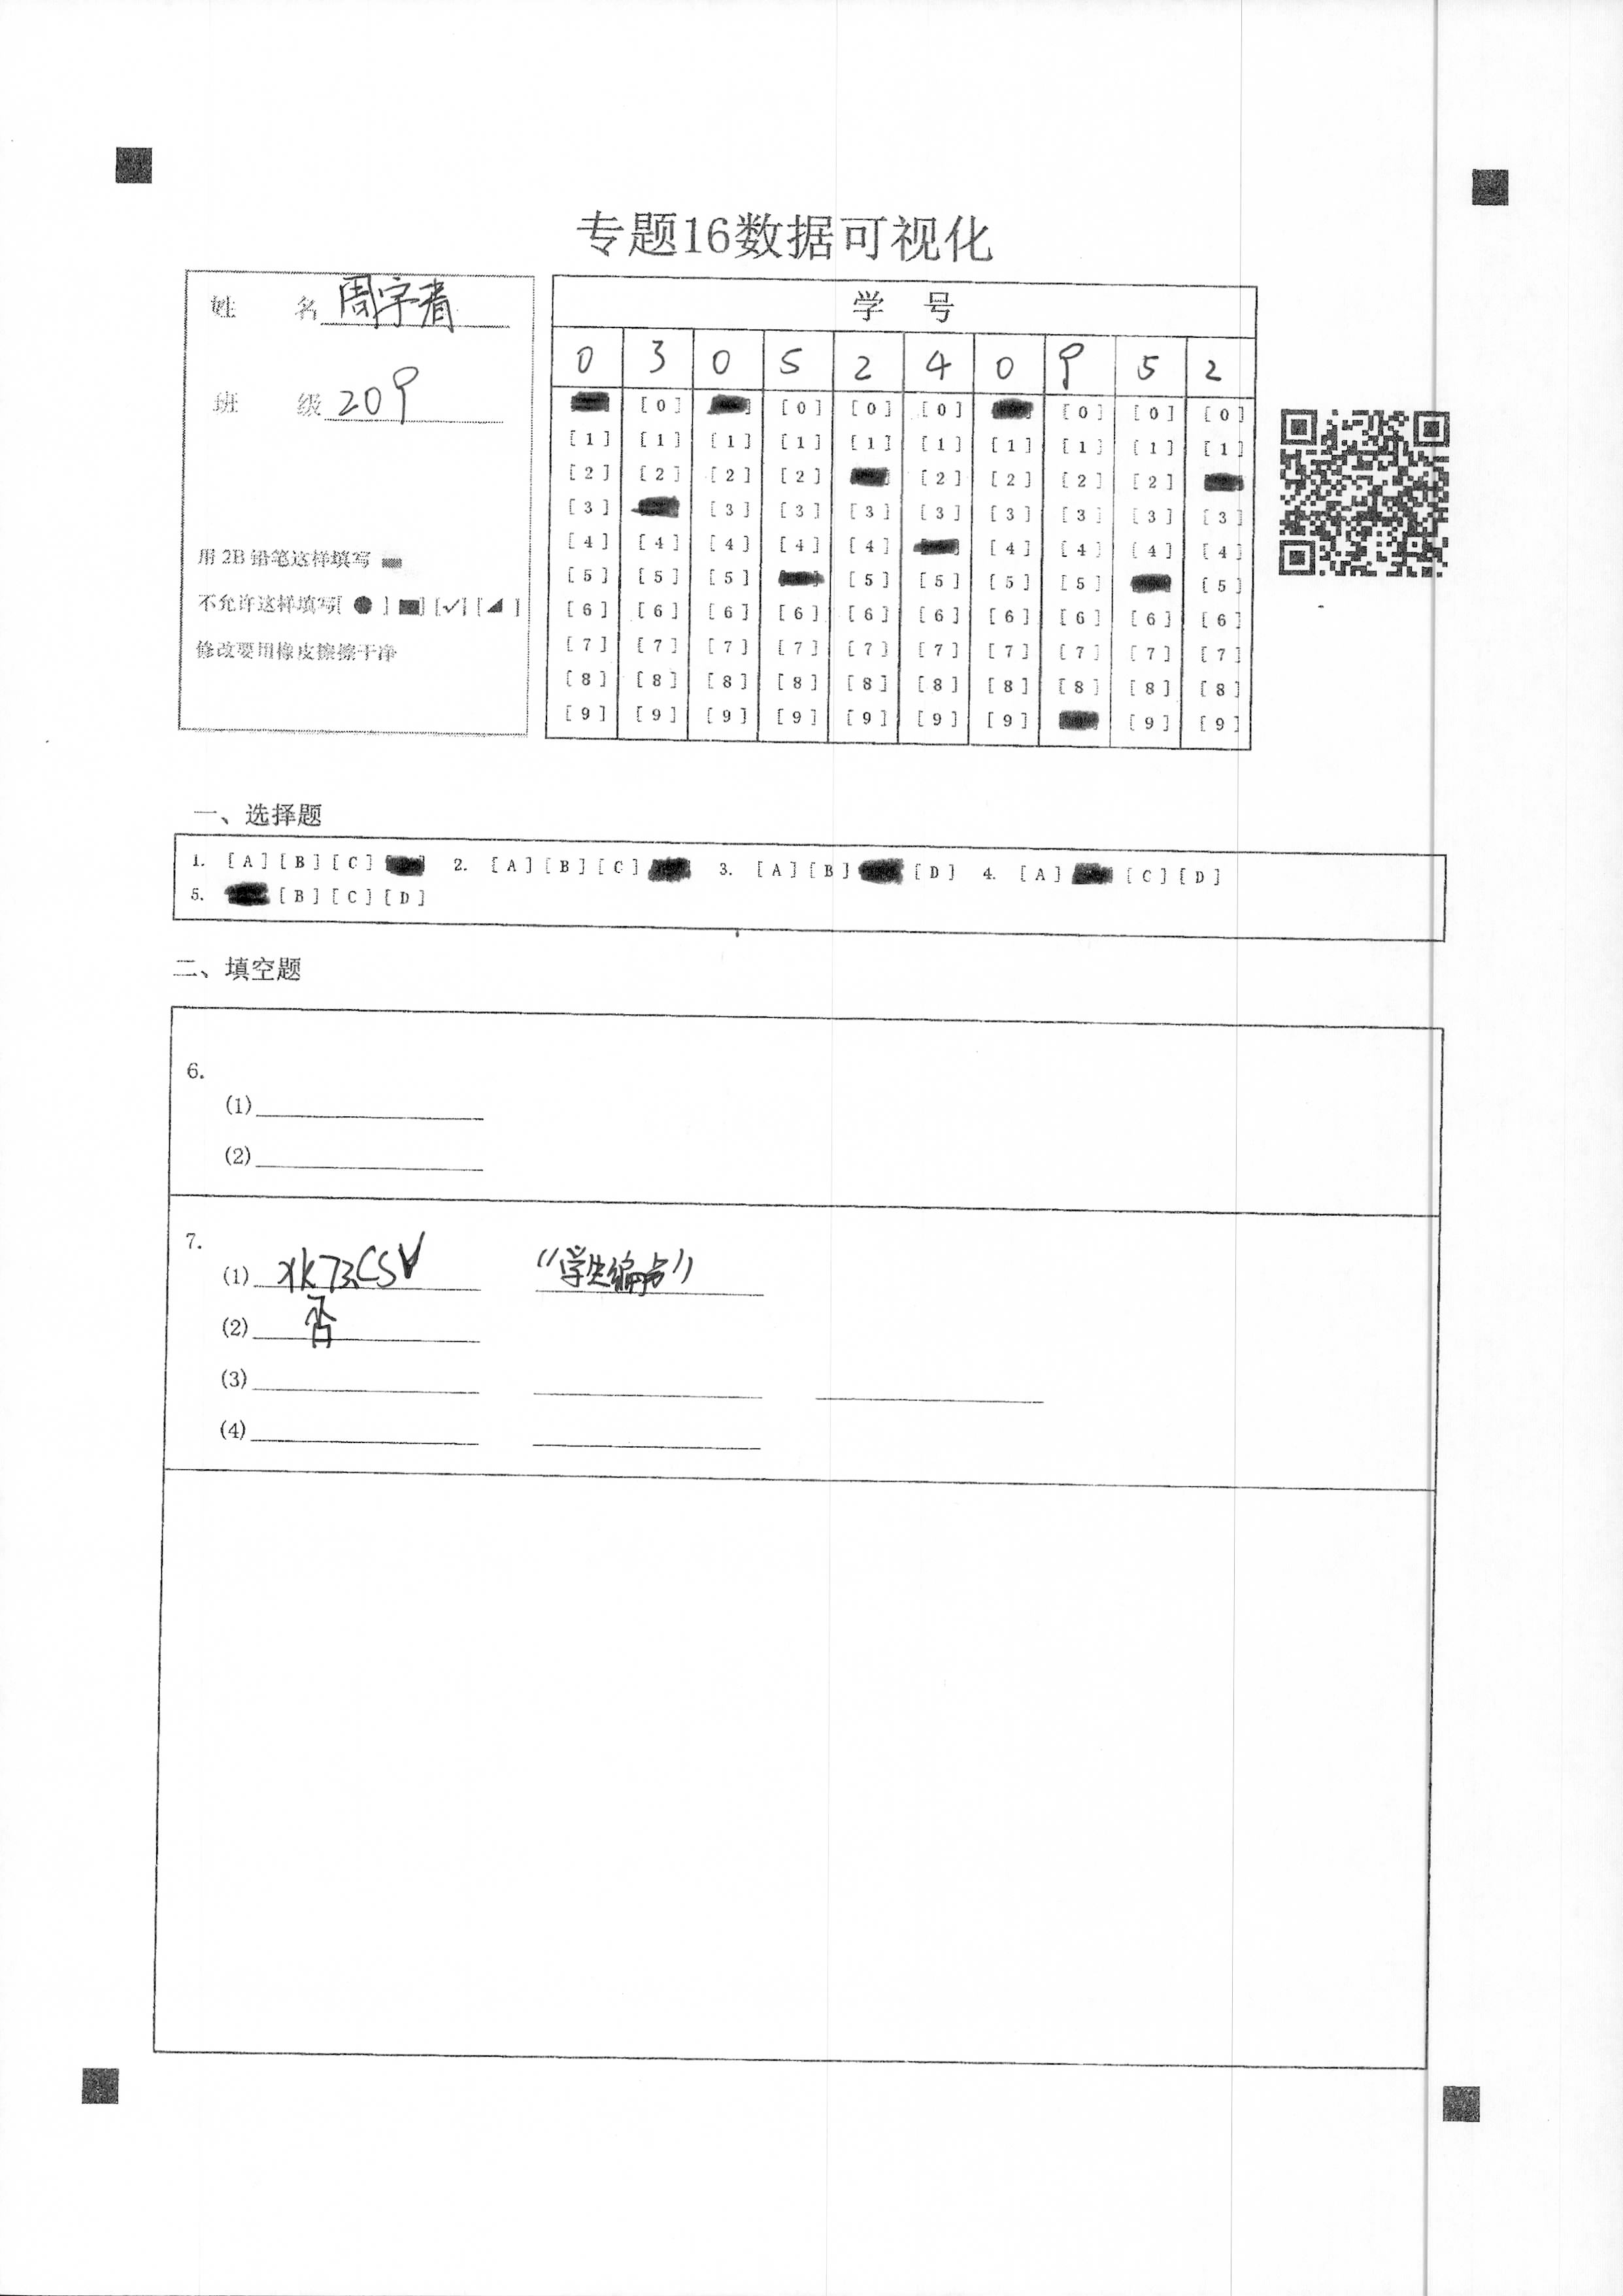 专题16数据可视化
姓 名 周宇
班 级 209
用 2B 铅笔这样填写
不允许这样填写[ ● ] [✓] [◢ ]
修改要用橡皮擦擦干净
学 号
0 3 0 5 2 4 0 9 5 2
[0] [0] [0] [0] [0] [0] [0]
[1] [1] [1] [1] [1] [1] [1] [1] [1] [1]
[2] [2] [2] [2] [2] [2] [2] [2]
[3] [3] [3] [3] [3] [3] [3] [3] [3]
[4] [4] [4] [4] [4] [4] [4] [4] [4]
[5] [5] [5] [5] [5] [5] [5] [5]
[6] [6] [6] [6] [6] [6] [6] [6] [6] [6]
[7] [7] [7] [7] [7] [7] [7] [7] [7] [7]
[8] [8] [8] [8] [8] [8] [8] [8] [8] [8]
[9] [9] [9] [9] [9] [9] [9] [9] [9]
一、选择题
1. [A] [B] [C] 2. [A] [B] [C] 3. [A] [B] [D] 4. [A] [C] [D]
5. [B] [C] [D]
二、填空题
6.
(1)
(2)
7.
(1) xk73.CSV "学生编号"
(2) 否
(3)
(4)